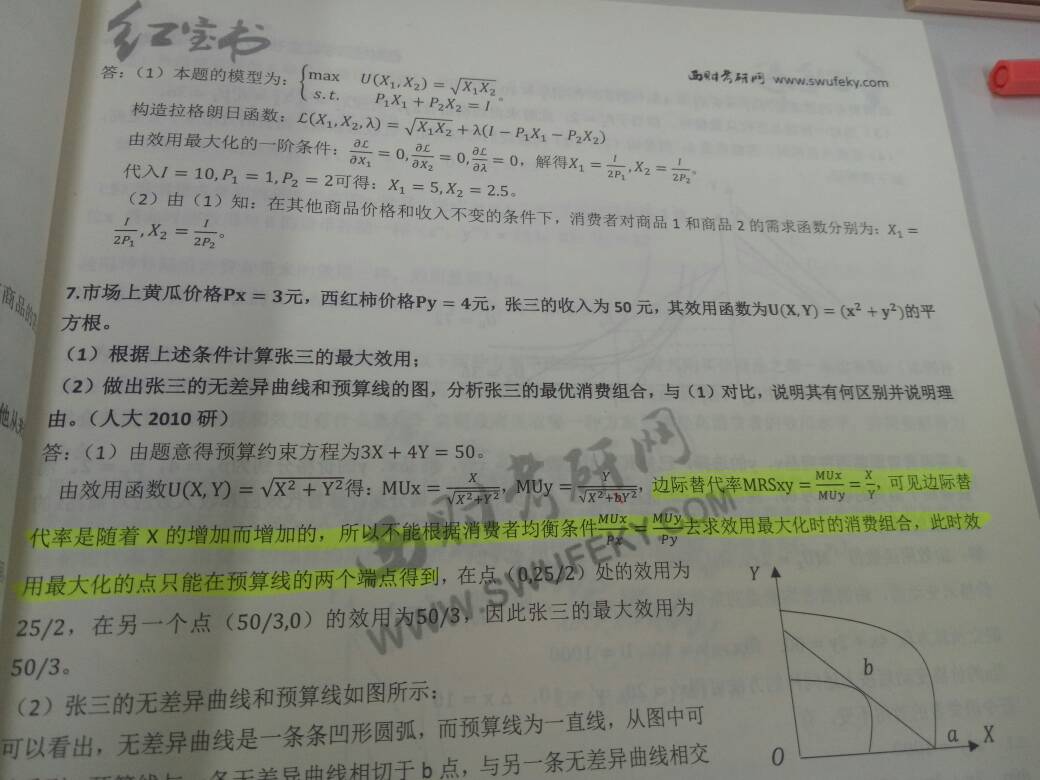 红宝书
西财考研网 www.swufeky.com
答：（1）本题的模型为：{max U(X₁,X₂) = √X₁X₂
s.t. P₁X₁ + P₂X₂ = I 。
构造拉格朗日函数：ℒ(X₁,X₂,λ) = √X₁X₂ + λ(I − P₁X₁ − P₂X₂)
由效用最大化的一阶条件：∂ℒ/∂X₁ = 0, ∂ℒ/∂X₂ = 0, ∂ℒ/∂λ = 0，解得X₁ = I/2P₁, X₂ = I/2P₂。
代入I = 10, P₁ = 1, P₂ = 2可得：X₁ = 5, X₂ = 2.5。
（2）由（1）知：在其他商品价格和收入不变的条件下，消费者对商品 1 和商品 2 的需求函数分别为：X₁ =
I/2P₁, X₂ = I/2P₂。
商品的
7.市场上黄瓜价格Px = 3元，西红柿价格Py = 4元，张三的收入为 50 元，其效用函数为U(X,Y) = (x² + y²)的平
方根。
（1）根据上述条件计算张三的最大效用；
（2）做出张三的无差异曲线和预算线的图，分析张三的最优消费组合，与（1）对比，说明其有何区别并说明理
由。（人大 2010 研）
答：（1）由题意得预算约束方程为3X + 4Y = 50。
由效用函数U(X,Y) = √X² + Y²得：MUx = X/√X²+Y², MUy = Y/√X²+Y²，边际替代率MRSxy = MUx/MUy = X/Y，可见边际替
代率是随着 X 的增加而增加的，所以不能根据消费者均衡条件MUx/Px = MUy/Py去求效用最大化时的消费组合，此时效
用最大化的点只能在预算线的两个端点得到，在点（0,25/2）处的效用为
25/2，在另一个点（50/3,0）的效用为50/3，因此张三的最大效用为
50/3。
（2）张三的无差异曲线和预算线如图所示：
可以看出，无差异曲线是一条条凹形圆弧，而预算线为一直线，从图中可
条无差异曲线相切于 b 点，与另一条无差异曲线相交
Y
b
a
X
O
西财考研网
WWW.SWUFEKY.COM